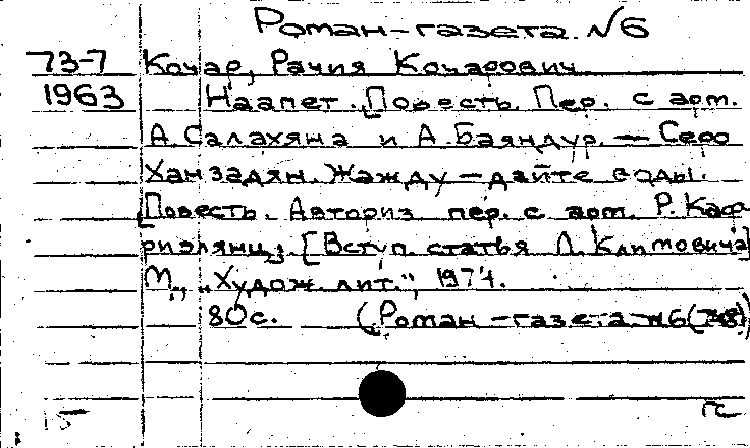 Роман-газета. №6
73-7 Кочар, Рачия Кочарович
1963 Наапет. [Повесть. Пер. с арм.
А. Салахяна и А. Баяндур. — Серо
Ханзадян. Жажду – дайте воды.
[Повесть. Авториз. пер. с арм. Р. Каф
риэлянц]. [Вступ. статья Л. Климовича]
М., „Худож. лит.", 1974.
80с. (Роман-газета №6
15